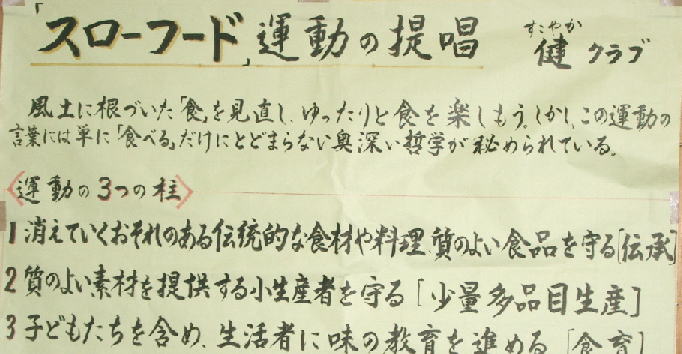 「スローフード」運動の提唱 健クラブ
すこやか
風土に根づいた「食」を見直し、ゆったりと食を楽しもう。しかし、この運動の
言葉には単に「食べる」だけにとどまらない奥深い哲学が秘められている。
〈運動の3つの柱〉
1 消えていくおそれのある伝統的な食材や料理、質のよい食品を守る[伝承]
2 質のよい素材を提供する小生産者を守る[少量多品目生産]
3 子どもたちを含め、生活者に味の教育を進める[食育]